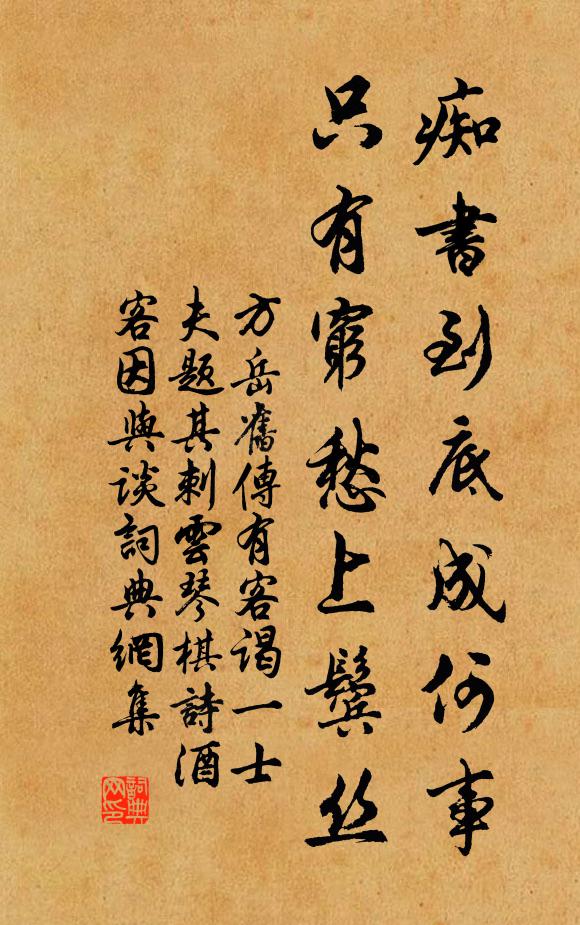 痴書到底成何事
只有窮愁上鬢丝
方岳舊傳有客謁一士
夫題其刺雲琴棋詩酒
客因與談詞典網集
詞典网印